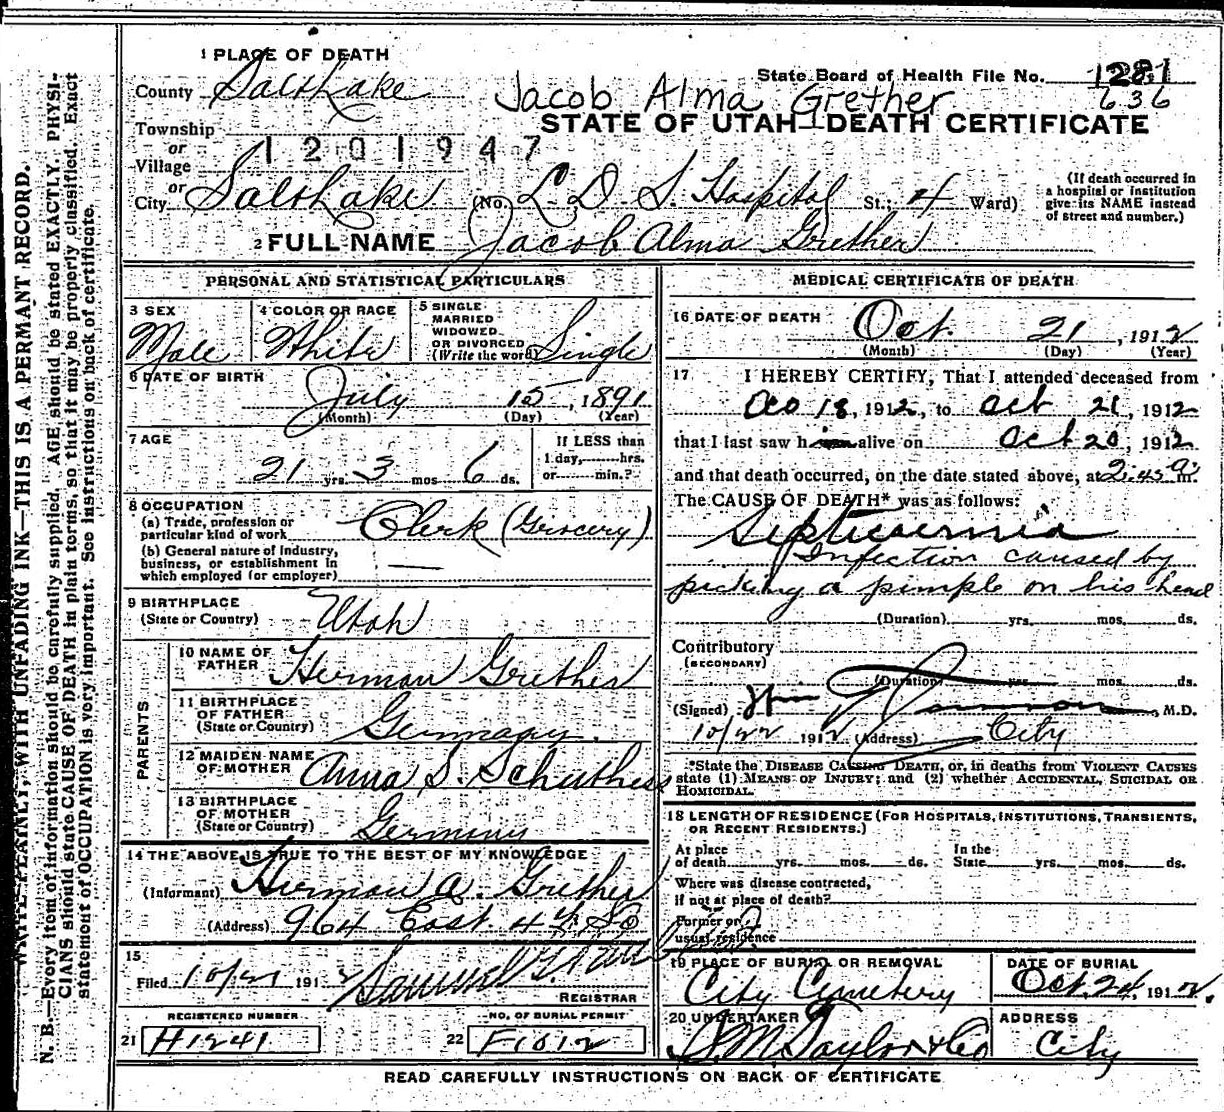 1 PLACE OF DEATH
State Board of Health File No. 1281
636
County Salt Lake
Jacob Alma Grether
STATE OF UTAH—DEATH CERTIFICATE
Township
or
Village
1201947
or
City Salt Lake (No. L. D. S. Hospital St.; 4 Ward)
(If death occurred in a hospital or institution give its NAME instead of street and number.)
2 FULL NAME Jacob Alma Grether
PERSONAL AND STATISTICAL PARTICULARS
3 SEX
Male
4 COLOR OR RACE
White
5 SINGLE
MARRIED
WIDOWED
OR DIVORCED
(Write the word) Single
6 DATE OF BIRTH
July 15, 1891
(Month) (Day) (Year)
7 AGE
21 yrs. 3 mos 6 ds.
If LESS than
1 day, hrs.
or min.?
8 OCCUPATION
(a) Trade, profession or
particular kind of work Clerk (Grocery)
(b) General nature of Industry,
business, or establishment in
which employed (or employer)
9 BIRTHPLACE
(State or Country) Utah
PARENTS
10 NAME OF
FATHER Herman Grether
11 BIRTHPLACE
OF FATHER
(State or Country) Germany.
12 MAIDEN NAME
OF MOTHER Anna S. Schuthess
13 BIRTHPLACE
OF MOTHER
(State or Country) Germany
14 THE ABOVE IS TRUE TO THE BEST OF MY KNOWLEDGE
(Informant) Herman A. Grether
(Address) 964 East 4th So
15
Filed 10/21 1912 Samuel G.
REGISTRAR
REGISTERED NUMBER
21 H1241
NO. OF BURIAL PERMIT
22 F1012
MEDICAL CERTIFICATE OF DEATH
16 DATE OF DEATH
Oct. 21, 1912
(Month) (Day) (Year)
17 I HEREBY CERTIFY, That I attended deceased from
Oct 18, 1912, to Oct 21, 1912
that I last saw h alive on Oct 20, 1912
and that death occurred, on the date stated above, at 2:45 a. m.
The CAUSE OF DEATH* was as follows:
Septicaemia
Infection caused by
picking a pimple on his head
(Duration) yrs. mos. ds.
Contributory
(SECONDARY)
(Duration) yrs. mos. ds.
(Signed) , M.D.
10/22 1912 (Address) City
*State the DISEASE CAUSING DEATH, or, in deaths from VIOLENT CAUSES
state (1) MEANS OF INJURY; and (2) whether ACCIDENTAL, SUICIDAL OR
HOMICIDAL.
18 LENGTH OF RESIDENCE (FOR HOSPITALS, INSTITUTIONS, TRANSIENTS,
OR RECENT RESIDENTS.)
At place
of death yrs. mos. ds.
In the
State yrs. mos. ds.
Where was disease contracted,
if not at place of death?
Former or
usual residence
19 PLACE OF BURIAL OR REMOVAL
City Cemetery
DATE OF BURIAL
Oct. 24, 1912.
20 UNDERTAKER
S. M. Taylor & Co
ADDRESS
City
READ CAREFULLY INSTRUCTIONS ON BACK OF CERTIFICATE
WRITE PLAINLY, WITH UNFADING INK—THIS IS A PERMANT RECORD.
N. B.—Every item of information should be carefully supplied. AGE should be stated EXACTLY. PHYSI-
CIANS should state CAUSE OF DEATH in plain terms, so that it may be properly classified. Exact
statement of OCCUPATION is very important. See instructions on back of certificate.